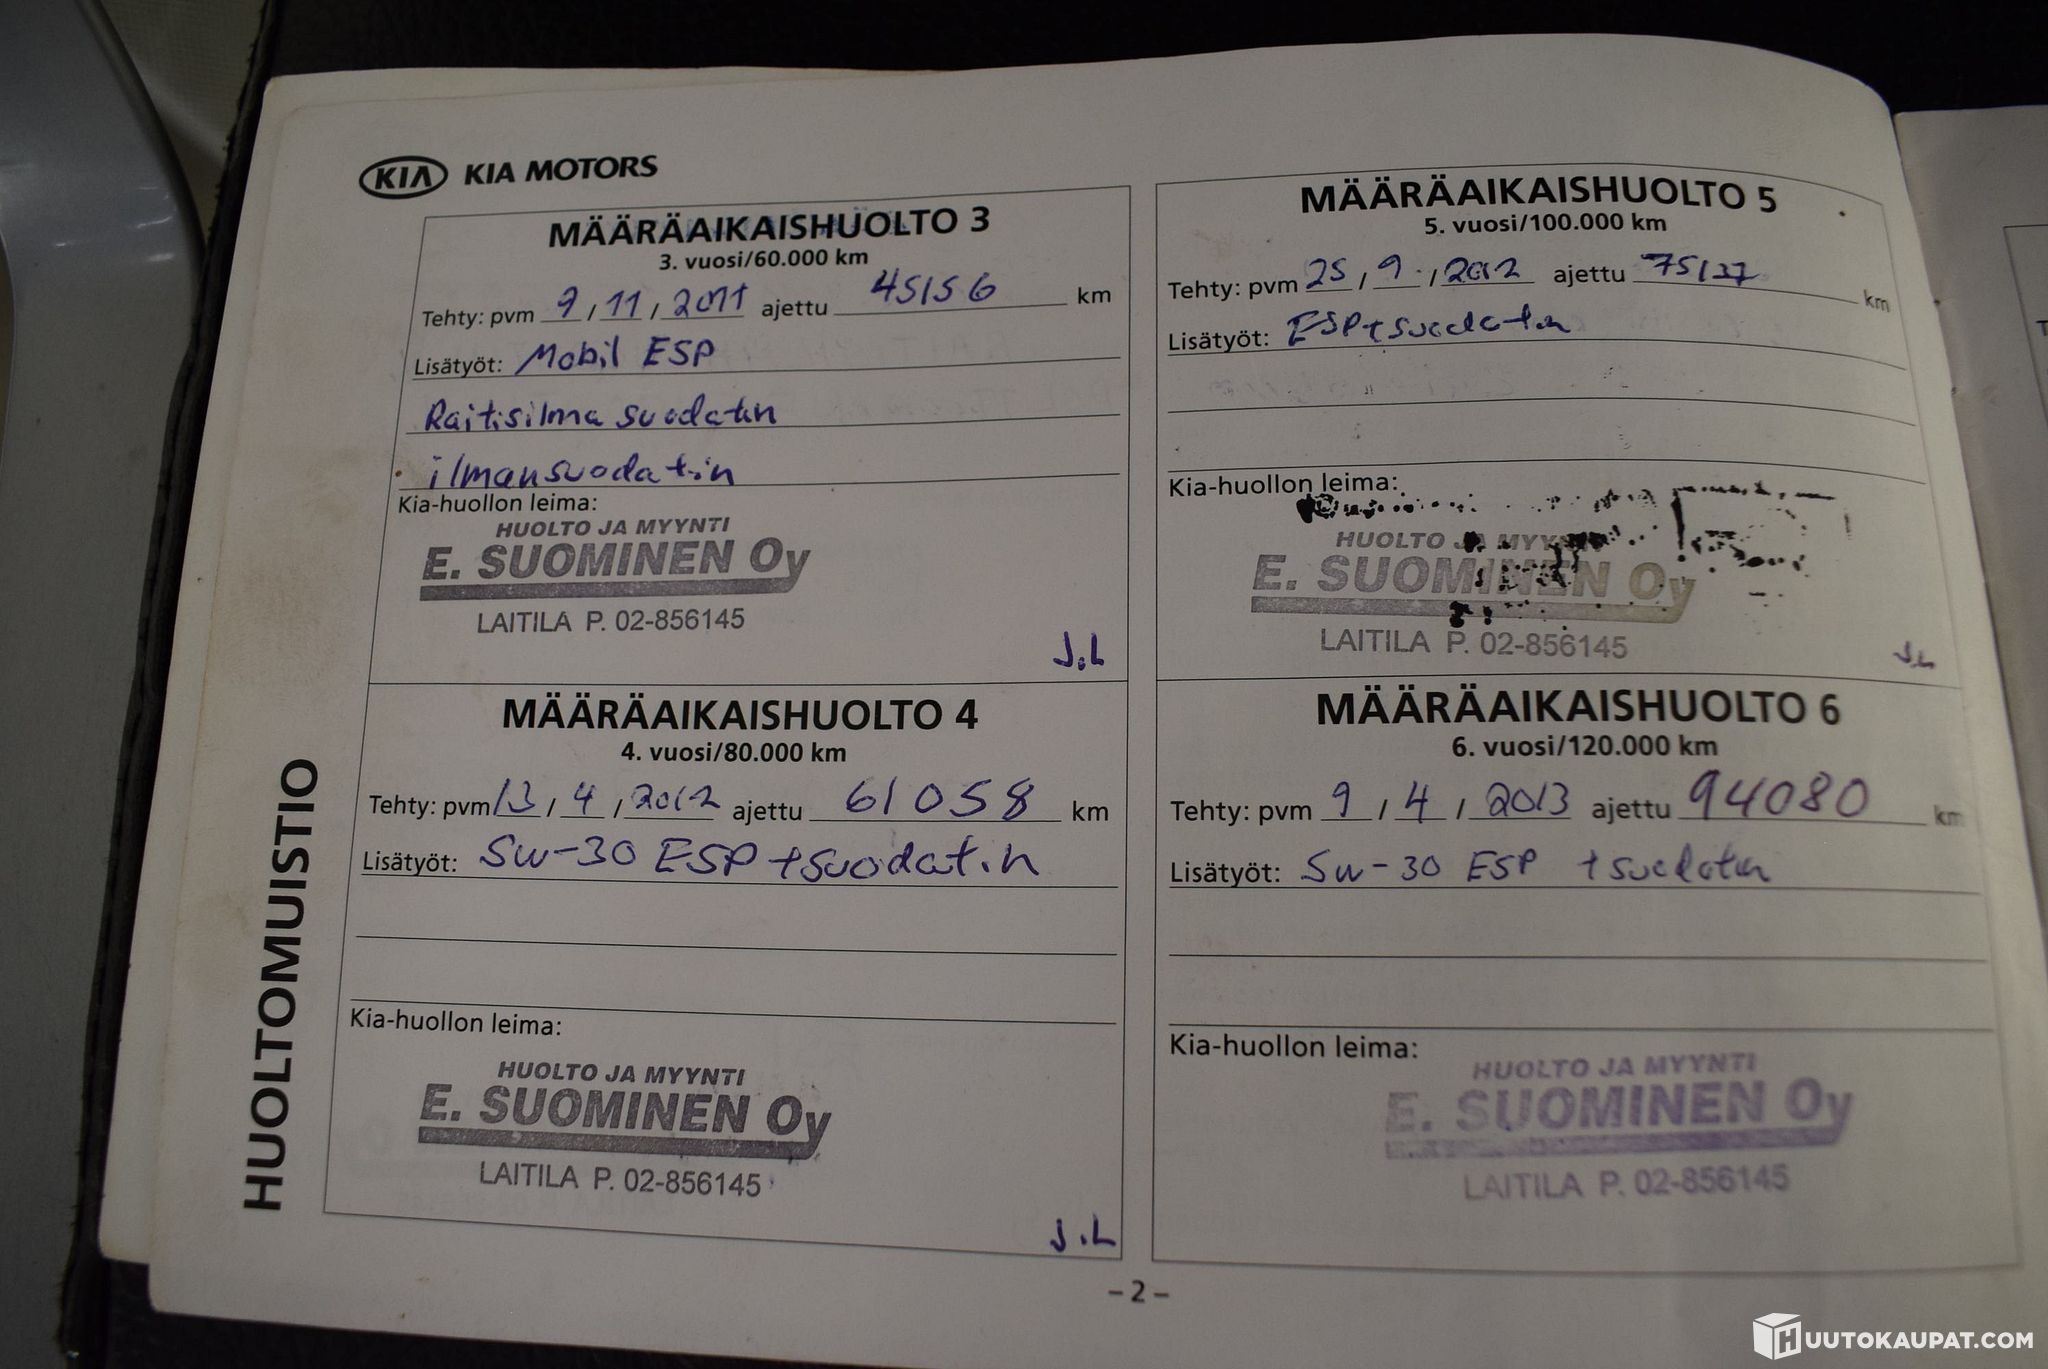 KIA KIA MOTORS
HUOLTOMUISTIO
MÄÄRÄAIKAISHUOLTO 3
3. vuosi/60.000 km
Tehty: pvm 9 / 11 / 2011 ajettu 45156 km
Lisätyöt: Mobil ESP
Raitisilma suodatin
ilmansuodatin
Kia-huollon leima:
HUOLTO JA MYYNTI
E. SUOMINEN Oy
LAITILA P. 02-856145
J.L
MÄÄRÄAIKAISHUOLTO 4
4. vuosi/80.000 km
Tehty: pvm 13 / 4 / 2012 ajettu 61058 km
Lisätyöt: 5w-30 ESP +suodatin
Kia-huollon leima:
HUOLTO JA MYYNTI
E. SUOMINEN Oy
LAITILA P. 02-856145
J.L
MÄÄRÄAIKAISHUOLTO 5
5. vuosi/100.000 km
Tehty: pvm 25 / 9 / 2012 ajettu 75137 km
Lisätyöt: ESP+suodatin
Kia-huollon leima:
HUOLTO JA MYYNTI
E. SUOMINEN Oy
LAITILA P. 02-856145
J.L
MÄÄRÄAIKAISHUOLTO 6
6. vuosi/120.000 km
Tehty: pvm 9 / 4 / 2013 ajettu 94080 km
Lisätyöt: 5w-30 ESP +suodatin
Kia-huollon leima:
HUOLTO JA MYYNTI
E. SUOMINEN Oy
LAITILA P. 02-856145
– 2 –
HUUTOKAUPAT.COM